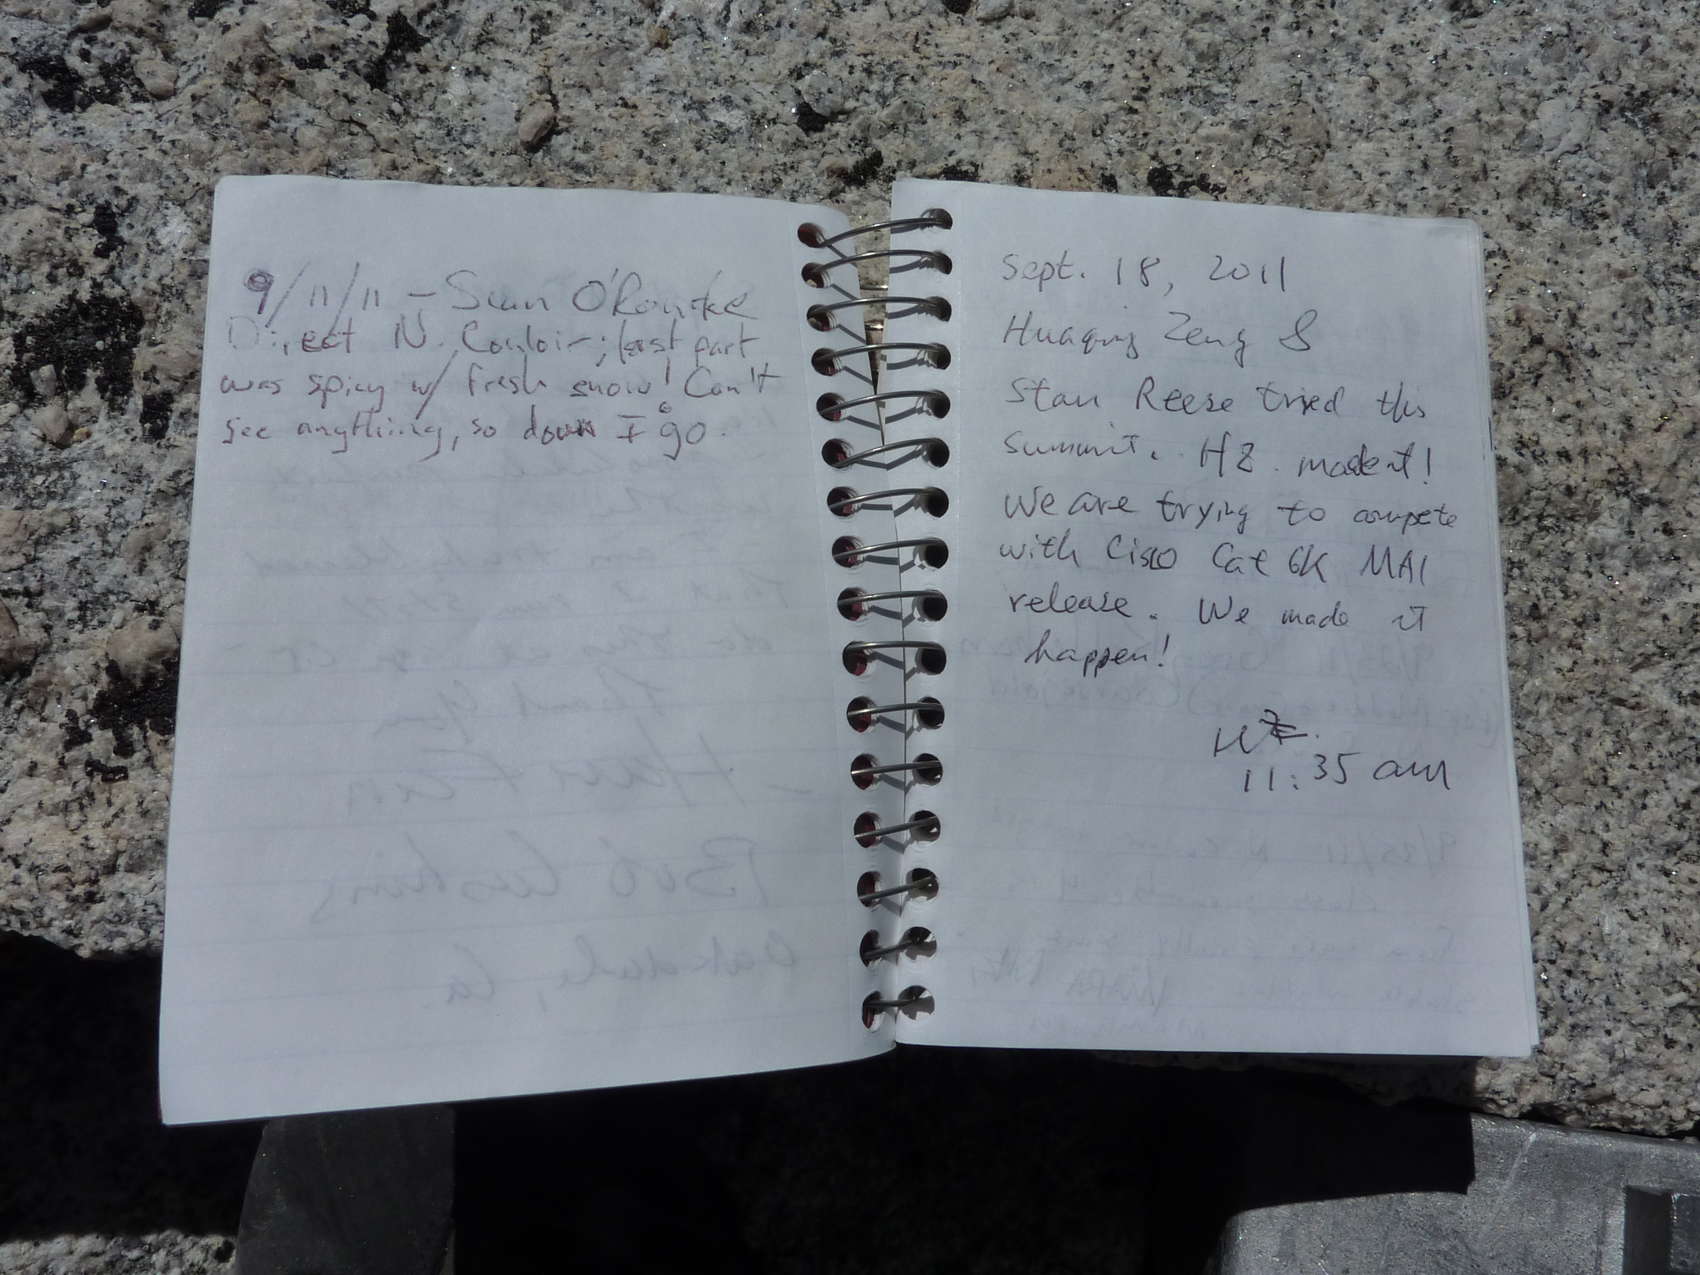 9/11/11 - Sean O'Rourke
Direct N. Couloir; last part
was spicy w/ fresh snow! Can't
see anything, so down I go.
Sept. 18, 2011
Huaqing Zeng &
Stan Reese tried this
summit. HZ. made it!
We are trying to compete
with Cisco Cat 6K MA1
release. We made it
happen!
HZ.
11:35 am